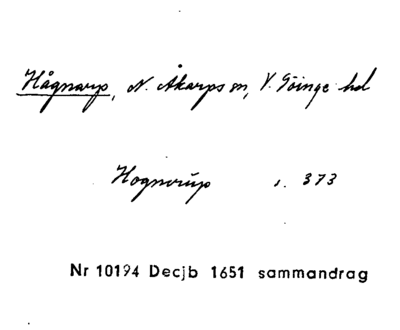 Hågnarp, N. Åkarps sn, V. Göinge hd
Hognerup s. 373
Nr 10194 Decjb 1651 sammandrag